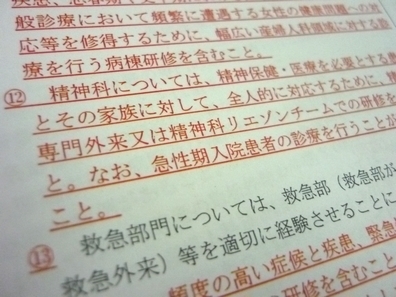 疾患、思春期や更年期に
般診療において頻繁に遭遇する女性の健康問題への対
応等を修得するために、幅広い産婦人科領域に対する診
療を行う病棟研修を含むこと。
⑫ 精神科については、精神保健・医療を必要とする
とその家族に対して、全人的に対応するために、精
専門外来又は精神科リエゾンチームでの研修を
と。なお、急性期入院患者の診療を行うことが
こと。
⑬ 救急部門については、救急部（救急部が
救急外来）等を適切に経験させることに
頻度の高い症候と疾患、緊急
研修を含むこ